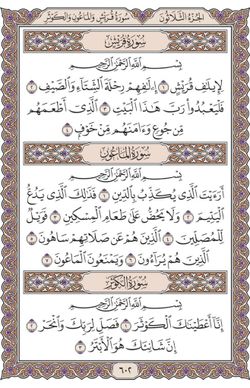 سُورَةُ قُرَيْشٍ وَالمَاعُونِ وَالكَوْثَرِ الجُزْءُ الثَّلَاثُونَ
سُورَةُ قُرَيْشٍ
بِسْمِ اللَّهِ الرَّحْمَٰنِ الرَّحِيمِ
لِإِيلَٰفِ قُرَيْشٍ ١ إِۦلَٰفِهِمْ رِحْلَةَ الشِّتَاءِ وَالصَّيْفِ ٢
فَلْيَعْبُدُوا رَبَّ هَٰذَا الْبَيْتِ ٣ الَّذِي أَطْعَمَهُم
مِّن جُوعٍ وَءَامَنَهُم مِّنْ خَوْفٍ ٤
سُورَةُ المَاعُونِ
بِسْمِ اللَّهِ الرَّحْمَٰنِ الرَّحِيمِ
أَرَءَيْتَ الَّذِي يُكَذِّبُ بِالدِّينِ ١ فَذَٰلِكَ الَّذِي يَدُعُّ
الْيَتِيمَ ٢ وَلَا يَحُضُّ عَلَىٰ طَعَامِ الْمِسْكِينِ ٣ فَوَيْلٌ
لِّلْمُصَلِّينَ ٤ الَّذِينَ هُمْ عَن صَلَاتِهِمْ سَاهُونَ ٥
الَّذِينَ هُمْ يُرَاءُونَ ٦ وَيَمْنَعُونَ الْمَاعُونَ ٧
سُورَةُ الكَوْثَرِ
بِسْمِ اللَّهِ الرَّحْمَٰنِ الرَّحِيمِ
إِنَّا أَعْطَيْنَٰكَ الْكَوْثَرَ ١ فَصَلِّ لِرَبِّكَ وَانْحَرْ ٢
إِنَّ شَانِئَكَ هُوَ الْأَبْتَرُ ٣
٦٠٢